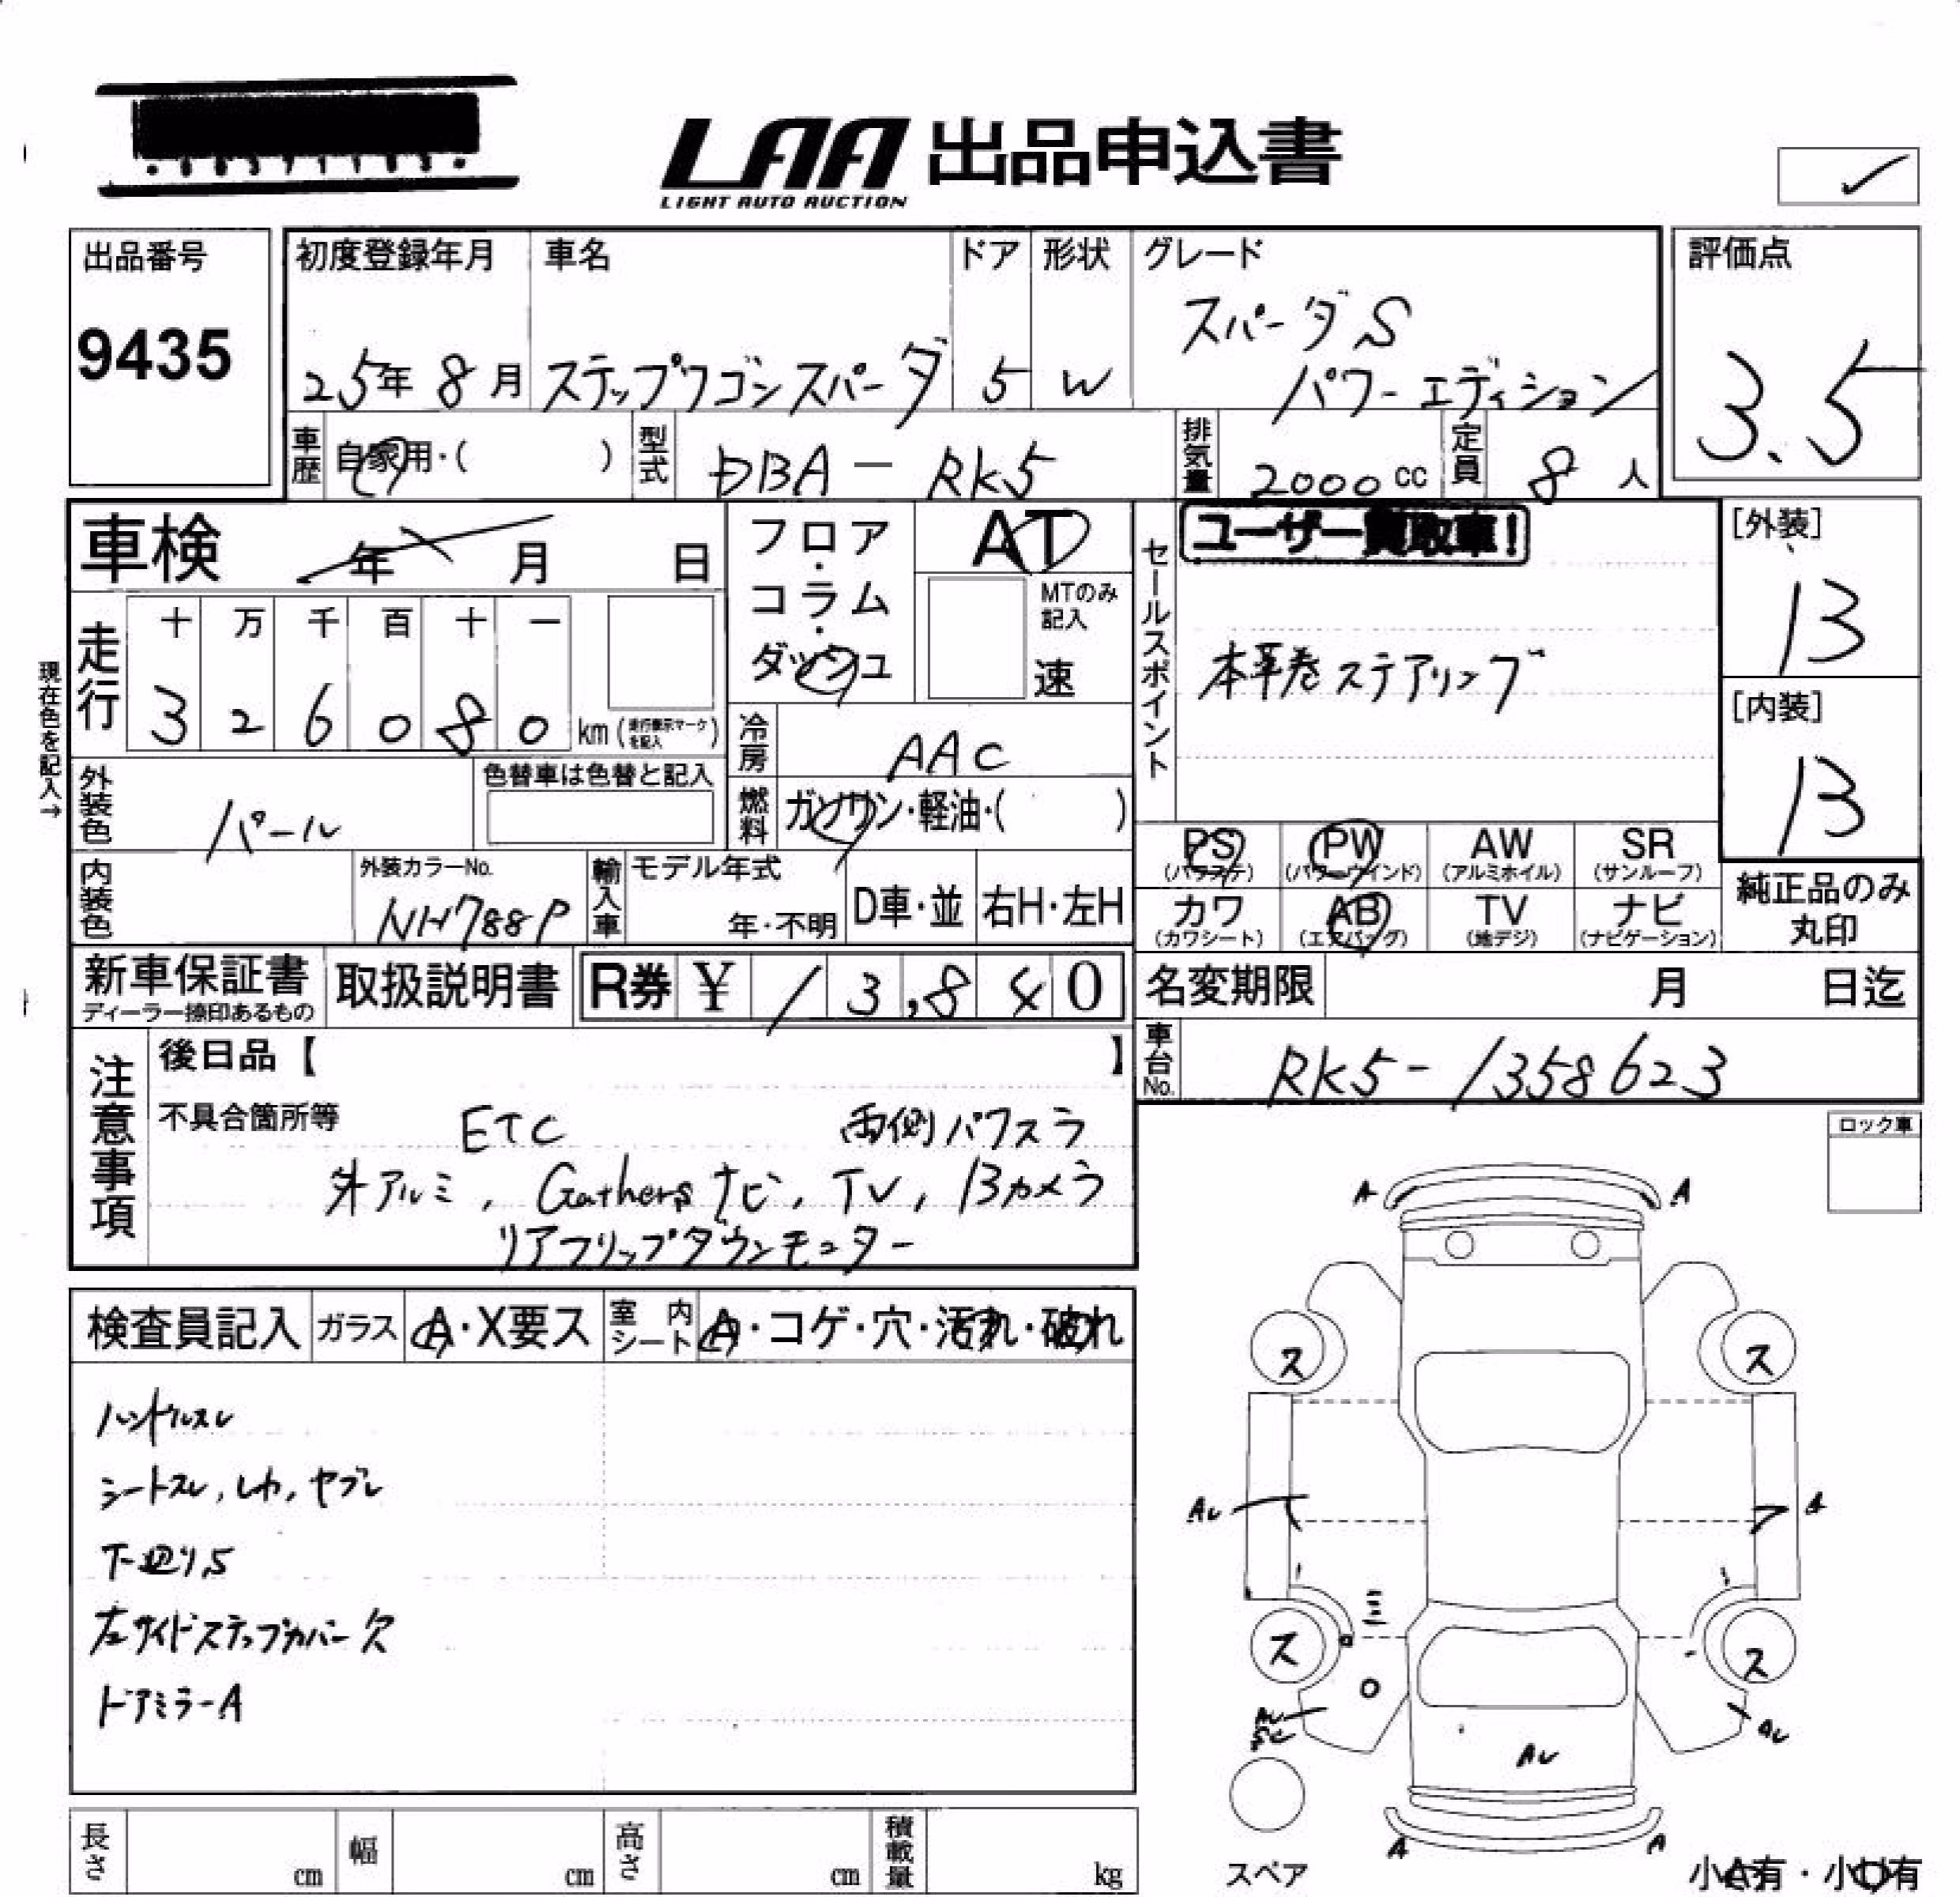 LAA 出品申込書
LIGHT AUTO AUCTION
出品番号
9435
初度登録年月
25年 8月
車名
ステップワゴンスパーダ
ドア
5
形状
W
グレード
スパーダS
パワーエディション
評価点
3.5
車歴 自家用・( )
型式 DBA-RK5
排気量 2000cc
定員 8人
車検 年 月 日
フロア・コラム・ダッシュ
AT
MTのみ記入
速
セールスポイント
ユーザー買取車!
本革巻ステアリング
[外装]
B
[内装]
B
現在色を記入→
走行
十 万 千 百 十 一
3 2 6 0 8 0 km(走行表示マークを記入)
冷房 AAC
外装色 パール
色替車は色替と記入
燃料 ガソリン・軽油・( )
内装色
外装カラーNo.
NH788P
輸入車
モデル年式
年・不明
D車・並
右H・左H
PS(パワステ)
PW(パワーウインド)
AW(アルミホイル)
SR(サンルーフ)
カワ(カワシート)
AB(エアバッグ)
TV(地デジ)
ナビ(ナビゲーション)
純正品のみ丸印
新車保証書
ディーラー捺印あるもの
取扱説明書
R券 ¥ 13,840
名変期限 月 日迄
車台No. RK5-1358623
注意事項
後日品【 】
不具合箇所等
ETC 両側パワスラ
外アルミ, Gathersナビ, TV, Bカメラ
リアフリップダウンモニター
ロック車
検査員記入
ガラス A・X要ス
室内シート A・コゲ・穴・汚れ・破れ
ハンドルスレ
シートスレ, しわ, ヤブレ
下廻りS
左サイドステップカバー欠
ドアミラーA
A A
ス ス
AU A
ス ス
AU
AU
AU
A A
スペア
小A有・小U有
長さ cm
幅 cm
高さ cm
積載量 kg